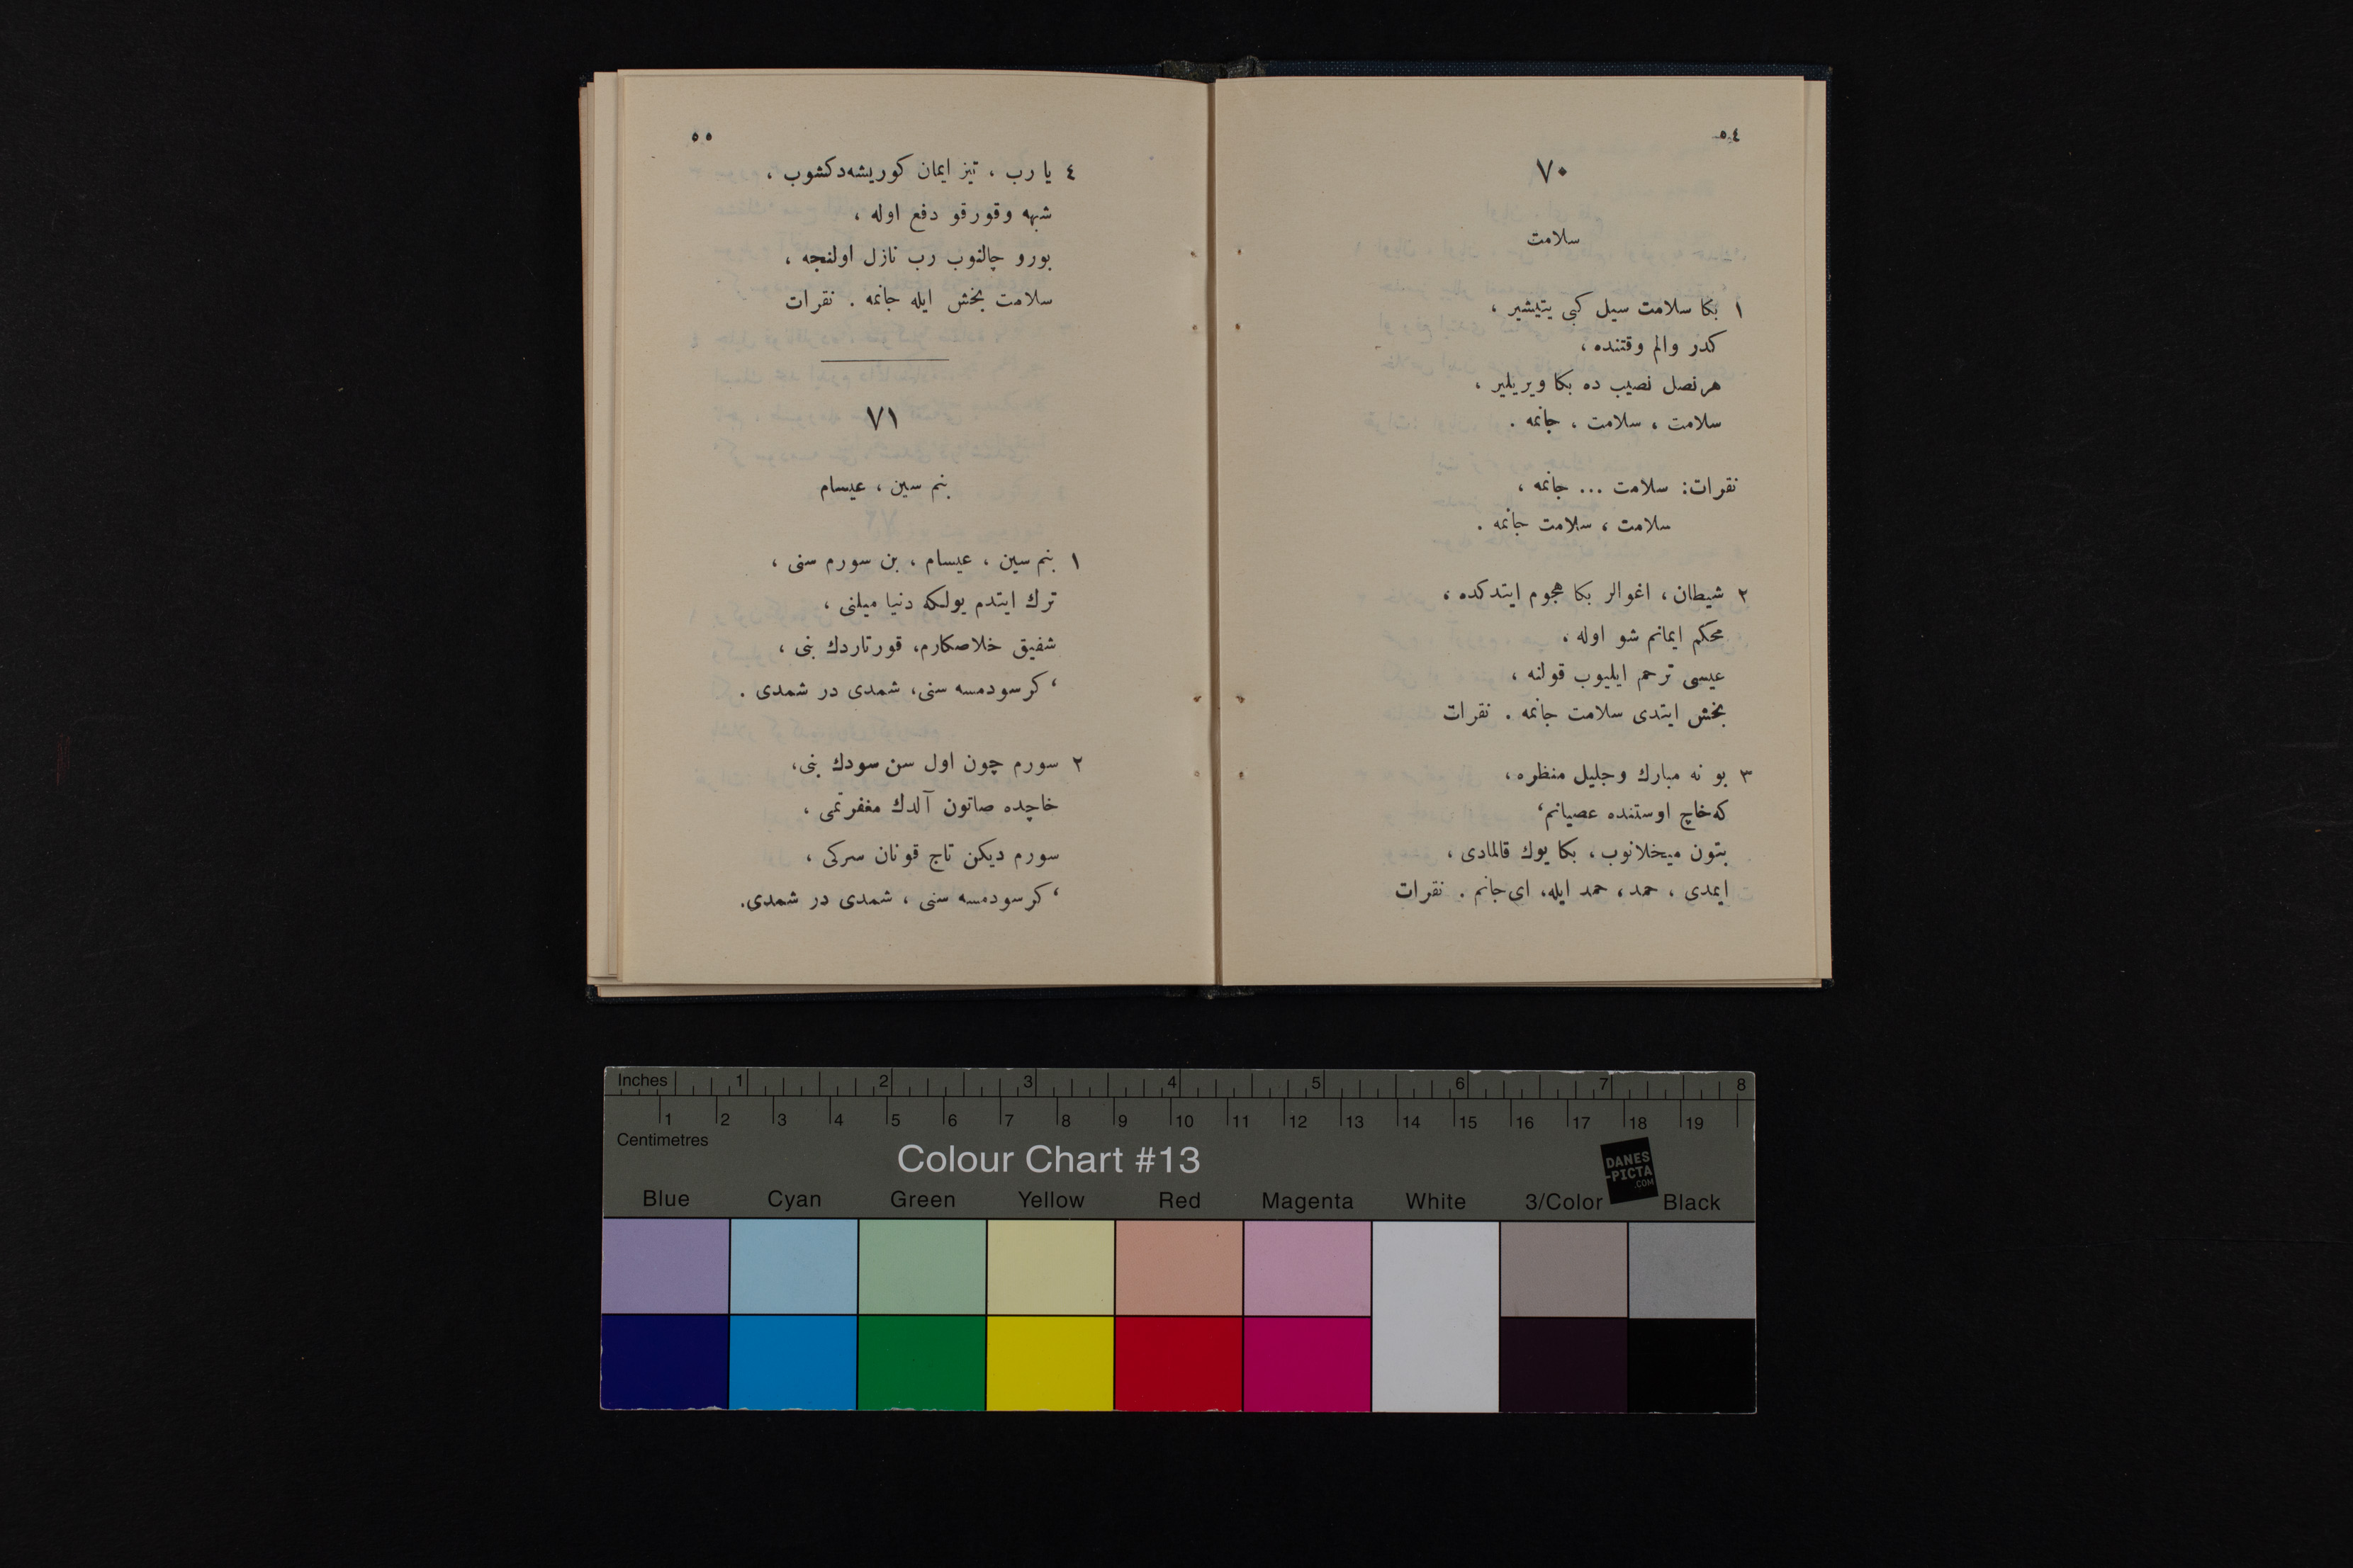 ٥٤
٧٠
سلامت
١ بكا سلامت سيل كبى يتيشير ،
كدر والم وقتنده ،
هرنصل نصيب ده بكا ويريلير ،
سلامت ، سلامت ، جانمه .
نقرات: سلامت ... جانمه ،
سلامت ، سلامت جانمه .
٢ شيطان ، اغوالر بكا هجوم ايتدكده ،
محكم ايمانم شو اوله ،
عيسى ترحم ايليوب قولنه ،
بخش ايتدى سلامت جانمه . نقرات
٣ بو نه مبارك وجليل منظره ،
كه خاچ اوستنده عصيانم ،
بتون ميخلانوب ، بكا يوك قالمادى ،
ايمدى ، حمد ، حمد ايله ، اى جانم . نقرات
٥٥
٤ يا رب ، تيز ايمان كوريشه دكشوب ،
شبهه وقورقو دفع اوله ،
بورو چالنوب رب نازل اولنجه ،
سلامت بخش ايله جانمه . نقرات
٧١
بنم سين ، عيسام
١ بنم سين ، عيسام ، بن سورم سنى ،
ترك ايتدم يولكه دنيا ميلنى ،
شفيق خلاصكارم ، قورتاردك بنى ،
، كرسودمسه سنى ، شمدى در شمدى .
٢ سورم چون اول سن سودك بنى ،
خاچده صاتون آلدك مغفرتمى ،
سورم ديكن تاج قونان سركى ،
، كرسودمسه سنى ، شمدى در شمدى .
Inches 1 2 3 4 5 6 7 8
1 2 3 4 5 6 7 8 9 10 11 12 13 14 15 16 17 18 19
Centimetres
Colour Chart #13
DANES
-PICTA
.COM
Blue Cyan Green Yellow Red Magenta White 3/Color Black